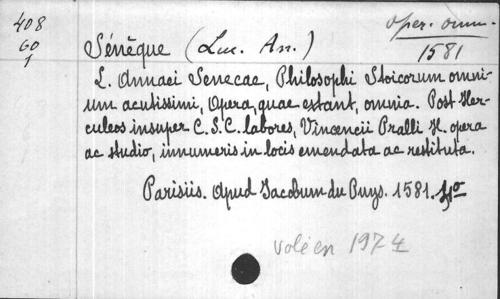 408
60
1
Oper. omn.
1581
Sénèque (Luc. An.)
L. Annaei Senecae, Philosophi Stoicorum omni-
um acutissimi, Opera, quae extant, omnia. Post Her-
culeos insuper C. S. C. labores, Vincencii Pralli H. opera
ac studio, innumeris in locis emendata ac restituta.
Parisiis. Apud Jacobum du Puys. 1581. 4o
volé en 1974